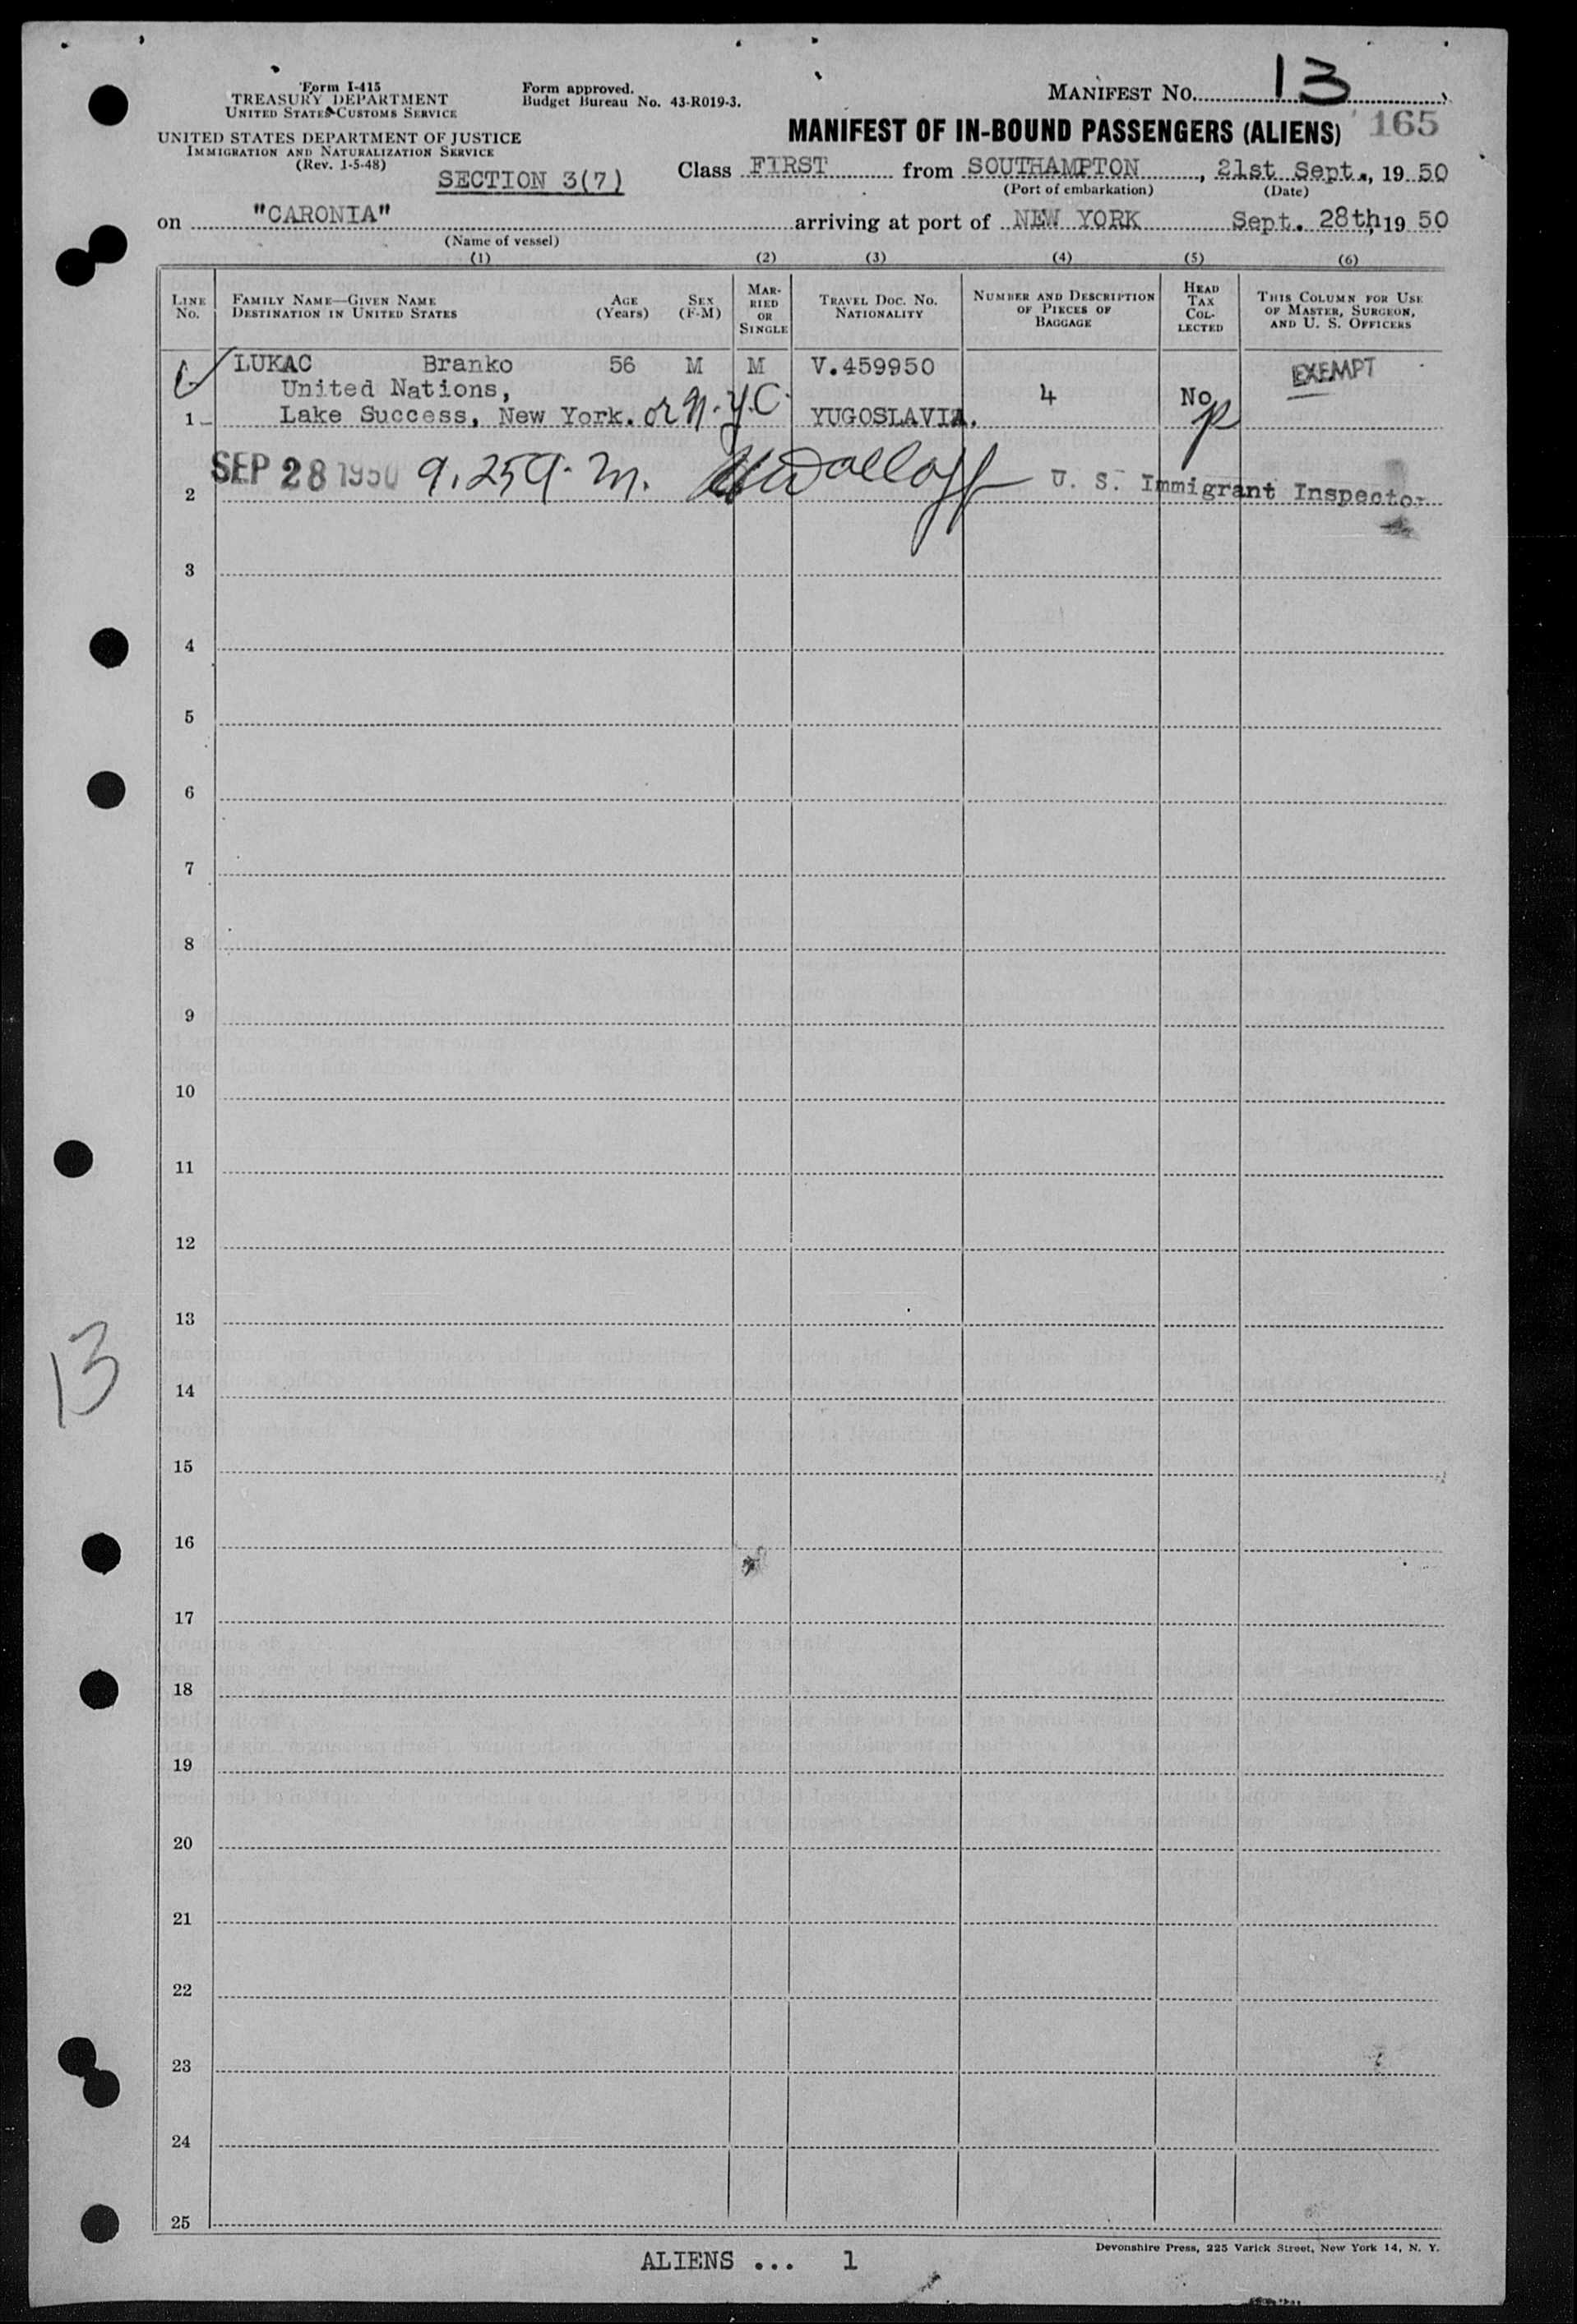 Form I-415
TREASURY DEPARTMENT
UNITED STATES CUSTOMS SERVICE
UNITED STATES DEPARTMENT OF JUSTICE
IMMIGRATION AND NATURALIZATION SERVICE
(Rev. 1-5-48)
SECTION 3(7)
Form approved.
Budget Bureau No. 43-R019-3.
MANIFEST NO. 13
MANIFEST OF IN-BOUND PASSENGERS (ALIENS) 165
Class FIRST from SOUTHAMPTON, 21st Sept., 19 50
(Port of embarkation) (Date)
on "CARONIA" arriving at port of NEW YORK Sept. 28th, 19 50
(Name of vessel)
(1) (2) (3) (4) (5) (6)
LINE NO. FAMILY NAME—GIVEN NAME DESTINATION IN UNITED STATES AGE (Years) SEX (F-M) MARRIED OR SINGLE TRAVEL DOC. NO. NATIONALITY NUMBER AND DESCRIPTION OF PIECES OF BAGGAGE HEAD TAX COLLECTED THIS COLUMN FOR USE OF MASTER, SURGEON, AND U. S. OFFICERS
LUKAC Branko 56 M M V.459950 EXEMPT
United Nations, 4 No
1 Lake Success, New York. or N.Y.C. YUGOSLAVIA.
2 SEP 28 1950 9.25 A.M. U. S. Immigrant Inspector
3
4
5
6
7
8
9
10
11
12
13
13
14
15
16
17
18
19
20
21
22
23
24
25
Devonshire Press, 225 Varick Street, New York 14, N. Y.
ALIENS ... 1